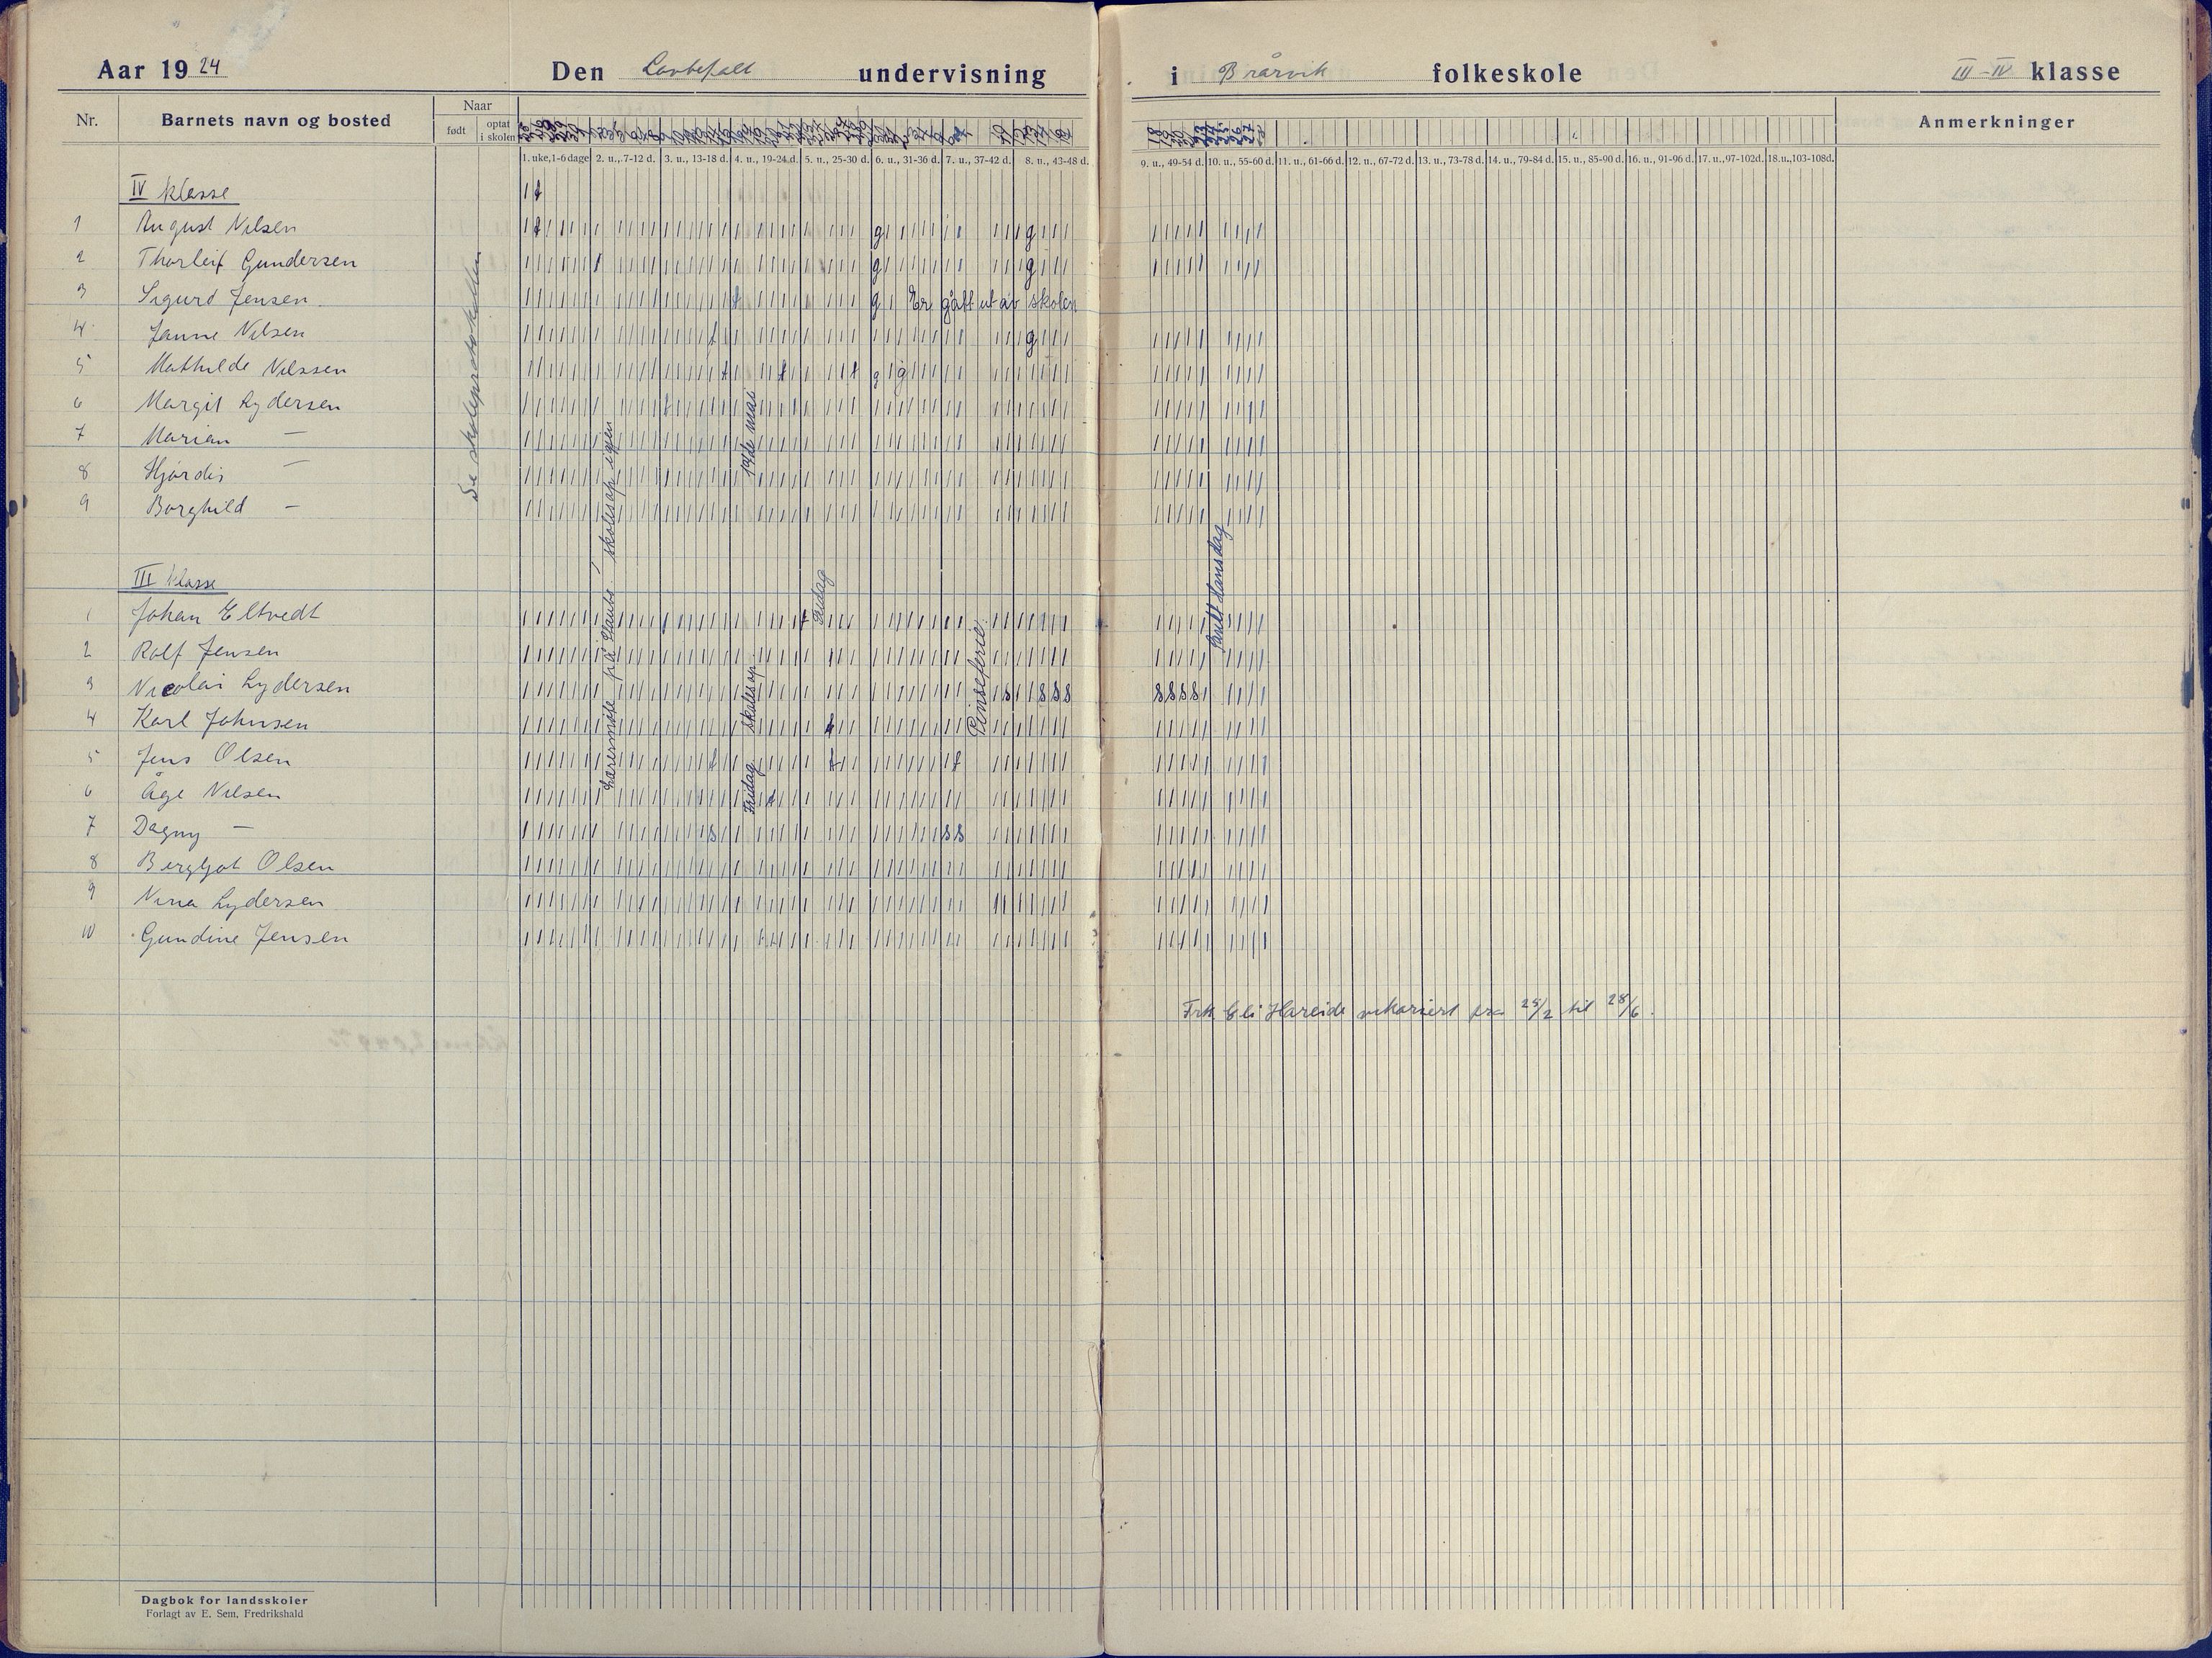 Aar 1924 Den Lovbefalt undervisning i Brårvik folkeskole III-IV klasse
Nr. Barnets navn og bosted Naar født optat i skolen Anmerkninger
1. uke, 1-6 dage 2. u., 7-12 d. 3. u., 13-18 d. 4. u., 19-24 d. 5. u., 25-30 d. 6. u., 31-36 d. 7. u., 37-42 d. 8. u., 43-48 d. 9. u., 49-54 d. 10. u., 55-60 d. 11. u., 61-66 d. 12. u., 67-72 d. 13. u., 73-78 d. 14. u., 79-84 d. 15. u., 85-90 d. 16. u., 91-96 d. 17. u., 97-102d. 18.u.,103-108d.
IV klasse
1 August Nilsen
2 Thorleif Gundersen
3 Sigurd Jensen Er gått ut av skolen
4 Janne Nilsen
5 Mathilde Nilssen
6 Margit Lydersen
7 Marian —
8 Hjørdis —
9 Borghild —
Se skoleprotokollen
III klasse
1 Johan Eltvedt
2 Rolf Jensen
3 Nicolai Lydersen
4 Karl Johnsen
5 Jens Olsen
6 Åge Nilsen
7 Dagny —
8 Bergljot Olsen
9 Nina Lydersen
10 Gundine Jensen
Lærermøte på Staubø skolesop igjen
17de mai
Fridag skolesop
Fridag
Pinseferie
Sankt Hansdag
Frk Eli Hareide vikariert fra 25/2 til 28/6.
Dagbok for landsskoler
Forlagt av E. Sem, Fredrikshald